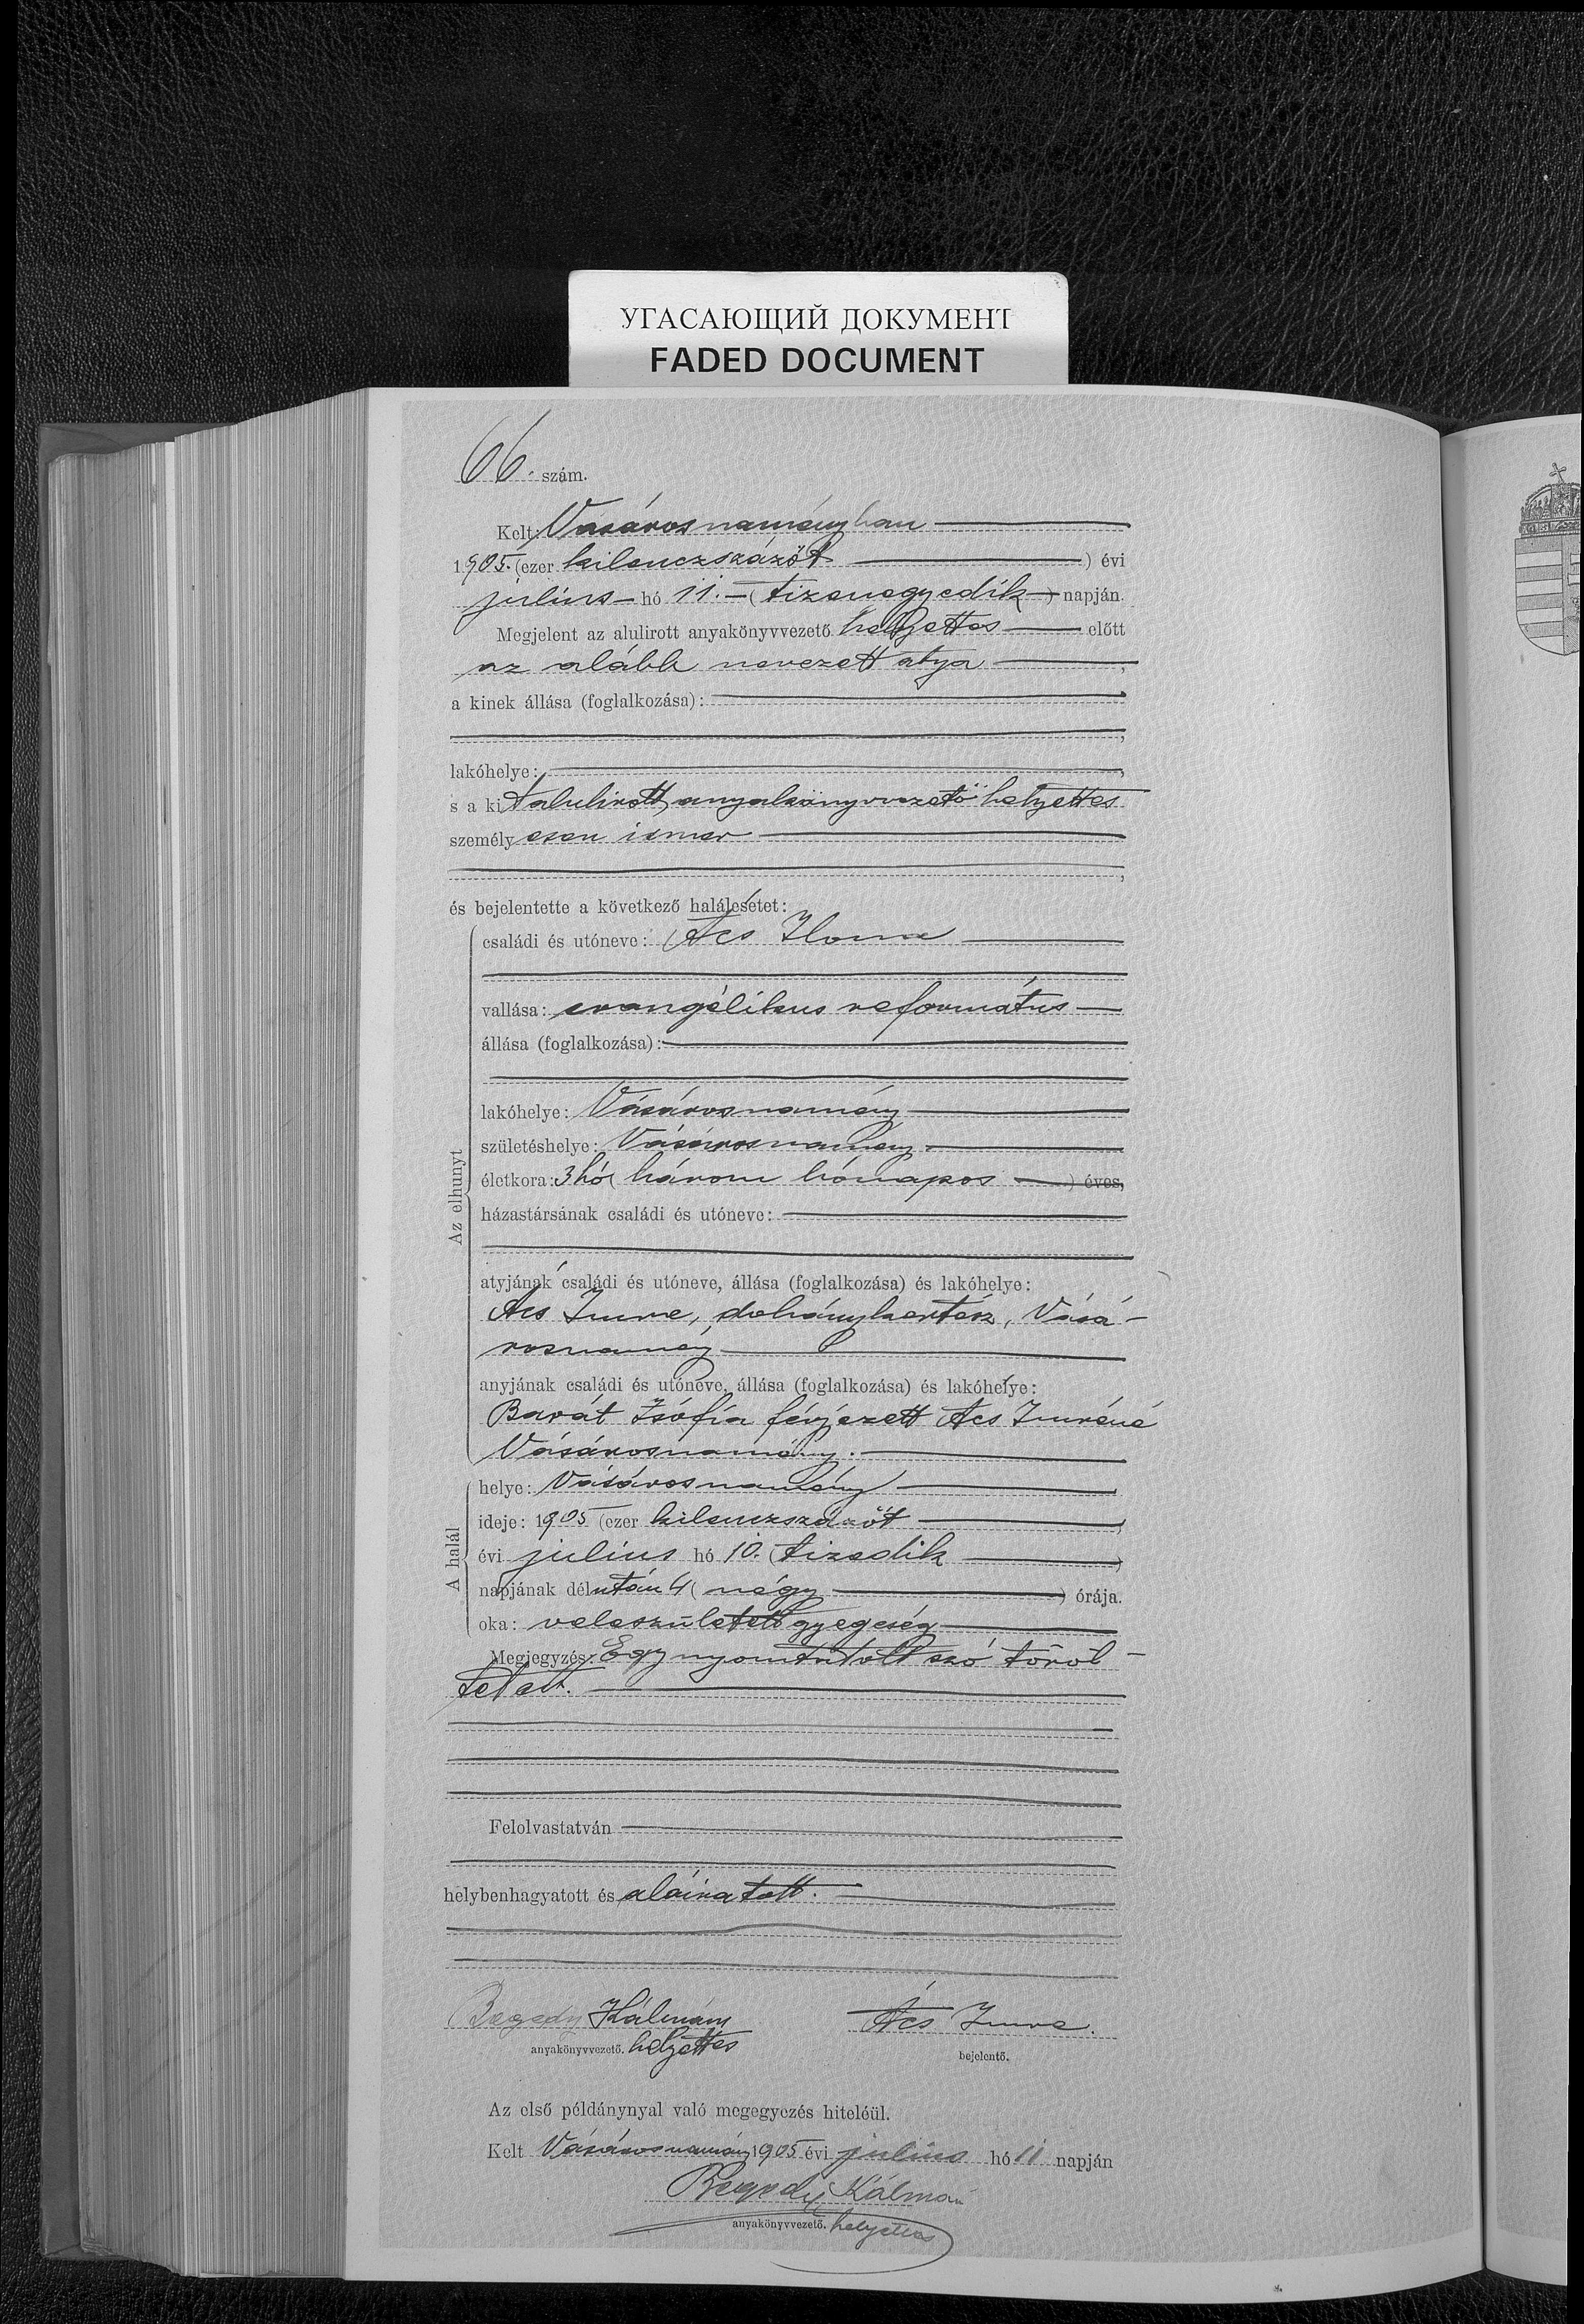 УГАСАЮЩИЙ ДОКУМЕНТ
FADED DOCUMENT
66. szám.
Kelt: Vásárosnaményban
1905. (ezer kilenczszázöt ) évi
július hó 11. (tizenegyedik) napján.
Megjelent az alulirott anyakönyvvezető helyettes előtt
az alább nevezett atya ,
a kinek állása (foglalkozása):
,
lakóhelye: ,
s a kit alulirott anyakönyvvezető helyettes
személyesen ismer
,
és bejelentette a következő halálesetet:
Az elhunyt
családi és utóneve: Ács Ilona
vallása: evangélikus református
állása (foglalkozása):
lakóhelye: Vásárosnamény
születéshelye: Vásárosnamény
életkora: 3 hó ( három hónapos ) éves,
házastársának családi és utóneve:
atyjának családi és utóneve, állása (foglalkozása) és lakóhelye:
Ács Imre, dohánykertész, Vásá-
rosnamény
anyjának családi és utóneve, állása (foglalkozása) és lakóhelye:
Barát Zsófia férjezett Ács Imréné
Vásárosnamény.
A halál
helye: Vásárosnamény
ideje: 1905 (ezer kilenczszázöt )
évi július hó 10. (tizedik )
napjának délután 4 ( négy ) órája.
oka: veleszületett gyegeség
Megjegyzés: Egy nyomtatott szó töröl-
tetett.
Felolvastatván
helybenhagyatott és aláiratott.
Begedy Kálmán Ács Imre.
anyakönyvvezető. helyettes bejelentő.
Az első példánynyal való megegyezés hiteléül.
Kelt Vásárosnamény 1905 évi július hó 11 napján
Begedy Kálmán
anyakönyvvezető. helyettes